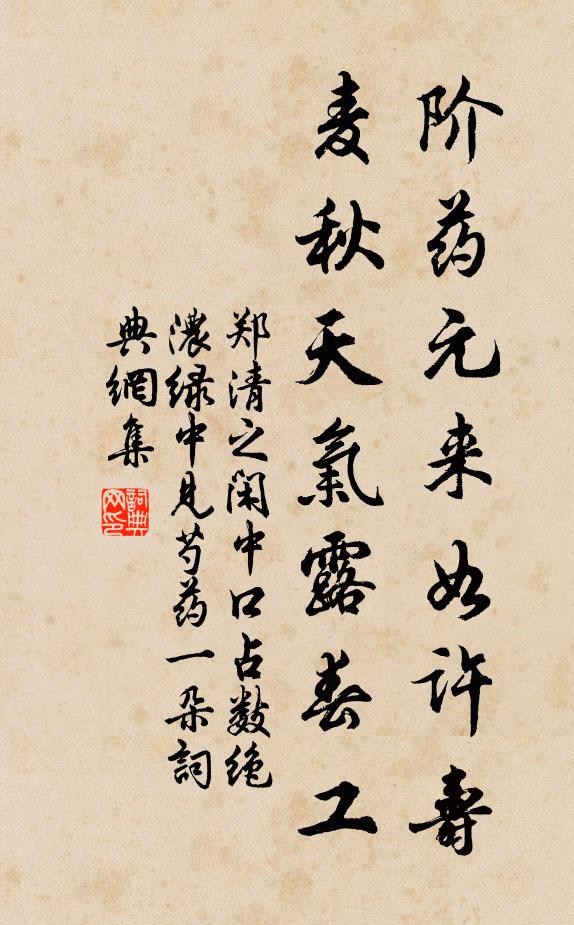 阶药元来如许寿
麦秋天氣露春工
郑清之闲中口占数绝
濃绿中見芍药一朵詞
典網集
詞典网印